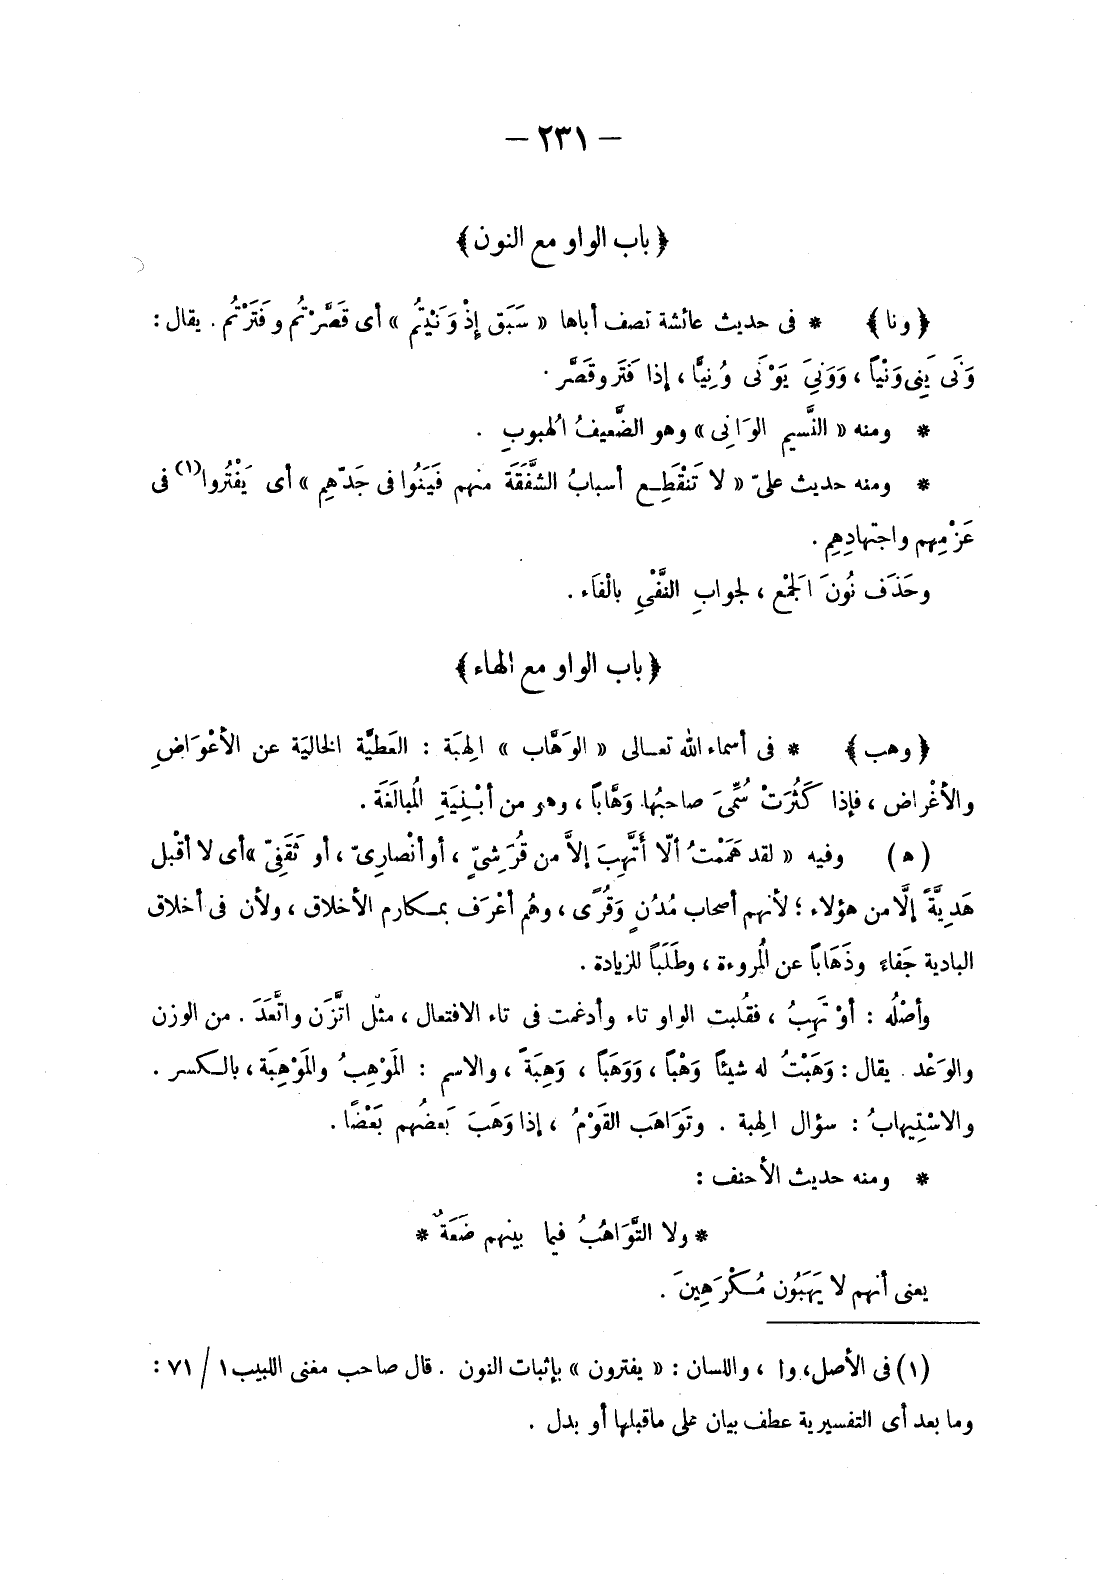 — ٢٣١ —
﴿ باب الواو مع النون ﴾
﴿ ونا ﴾ * فى حديث عائشة تصف أباها « سَبَق إذْ وَنَيْتُم » أى قَصَّرْتُم وفَتَرْتُم . يقال :
وَنَى يَنِى وَنْياً ، وَوَنِىَ يَوْنَى وُنِيًّا ، إذا فَتَر وقصَّر .
* ومنه « النَّسيم الوَانِى » وهو الضَّعيفُ الهُبوبِ .
* ومنه حديث علىّ « لا تَنْقَطِع أسبابُ الشَّفَقَة منهم فَيَنُوا فى جَدّهِم » أى يَفْتُروا(١) فى
عَزْمِهم واجتهادِهِم .
وحَذَف نُونَ الجَمْع ، لجوابِ النَّفْىِ بالْفَاء .
﴿ باب الواو مع الهاء ﴾
﴿ وهب ﴾ * فى أسماء الله تعالى « الوَهَّاب » الهِبَة : العَطيَّة الخالية عن الأعْوَاضِ
والأغْراض ، فإذا كَثُرَتْ سُمِّىَ صاحبُها وَهَّاباً ، وهو من أبْنِيَةِ المُبالَغَة .
(ه) وفيه « لقد هَمَمْتُ ألّا أَتَّهِبَ إلاَّ من قُرَشِىّ ، أو أنْصارِىّ ، أو ثَقَفِىّ » أى لا أقْبل
هَدِيَّةً إلَّا من هؤلاء ؛ لأنهم أصحاب مُدُنٍ وَقُرًى ، وهُم أعْرَف بمكارم الأخلاق ، ولأن فى أخلاق
البادية جَفاءً وذَهَاباً عن المُروءة ، وطَلَباً للزيادة .
وأصْلُه : أوْ تَهِبُ ، فقُلبت الواو تاء وأدغمت فى تاء الافتعال ، مثْل اتَّزَن واتَّعَدَ . من الوزن
والوَعْد . يقال : وَهَبْتُ له شيئاً وَهْباً ، وَوَهَباً ، وَهِبَةً ، والاسم : المَوْهِبُ والمَوْهِبَة ، بالكسر .
والاسْتِيهابُ : سؤال الهِبة . وتَوَاهَب القَوْمُ ، إذا وَهَبَ بَعضُهم بَعْضًا .
* ومنه حديث الأحنف :
* ولا التَّوَاهُبُ فيما بينهم ضَعَةٌ *
يعنى أنهم لا يَهَبُون مُكْرَهِينَ .
(١) فى الأصل، وا ، واللسان : « يفترون » بإثبات النون . قال صاحب مغنى اللبيب ١ / ٧١ :
وما بعد أى التفسيرية عطف بيان على ماقبلها أو بدل .